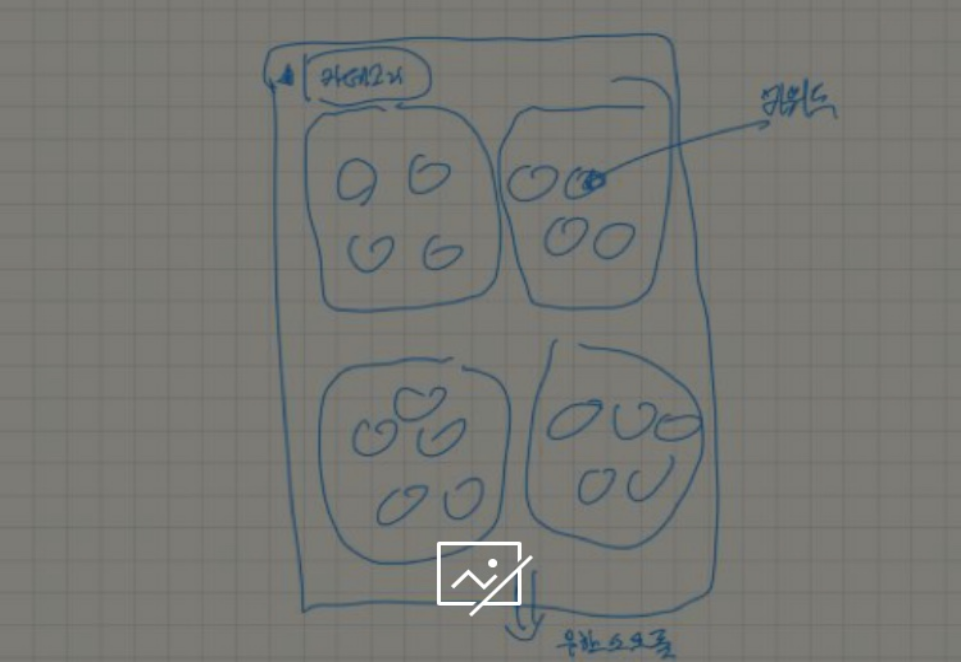 카테고리
키워드
무한 스크롤